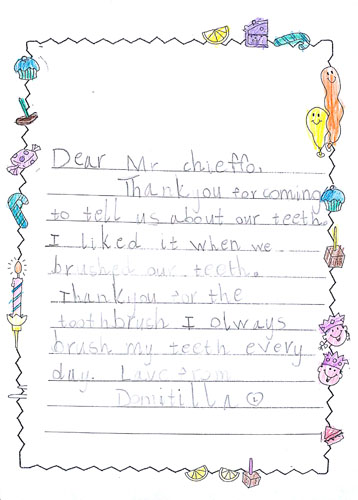 Dear Mr chieffo,
Thank you for coming
to tell us about our teeth.
I liked it when we
brushed our teeth.
Thank you for the
toothbrush I always
brush my teeth every
day. Love from
Domitilla